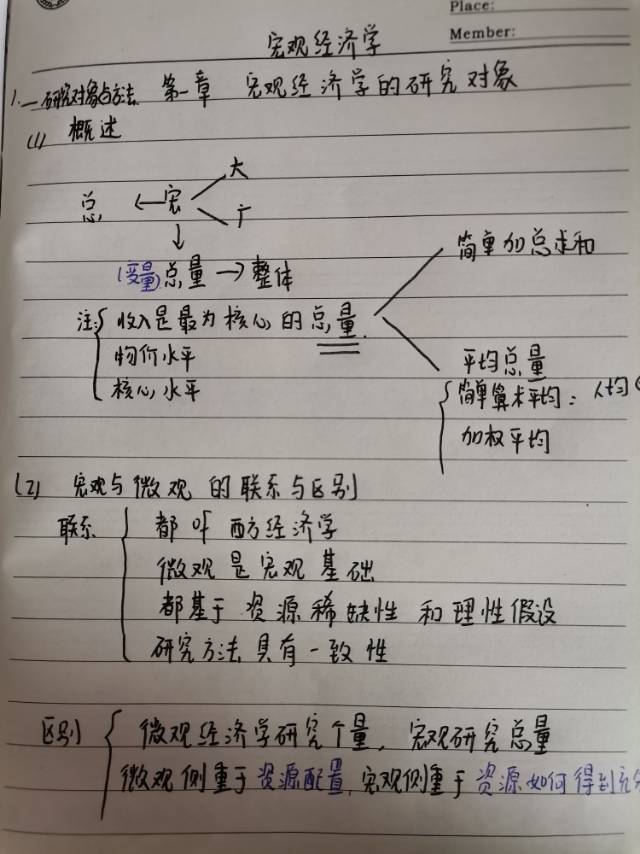 Place:
宏观经济学
Member:
1.一研究对象与方法 第一章 宏观经济学的研究对象
(1) 概述
大
总 ← 宏
广
↓
简单加总求和
(变量)总量 → 整体
注: 收入是最为核心的总量.
物价水平
平均总量
核心水平
简单算术平均: 人均
加权平均
(2) 宏观与微观 的联系与区别
联系 都叫西方经济学
微观是宏观基础
都基于资源稀缺性和理性假设
研究方法具有一致性
区别 微观经济学研究个量, 宏观研究总量
微观侧重于资源配置, 宏观侧重于资源如何得到充